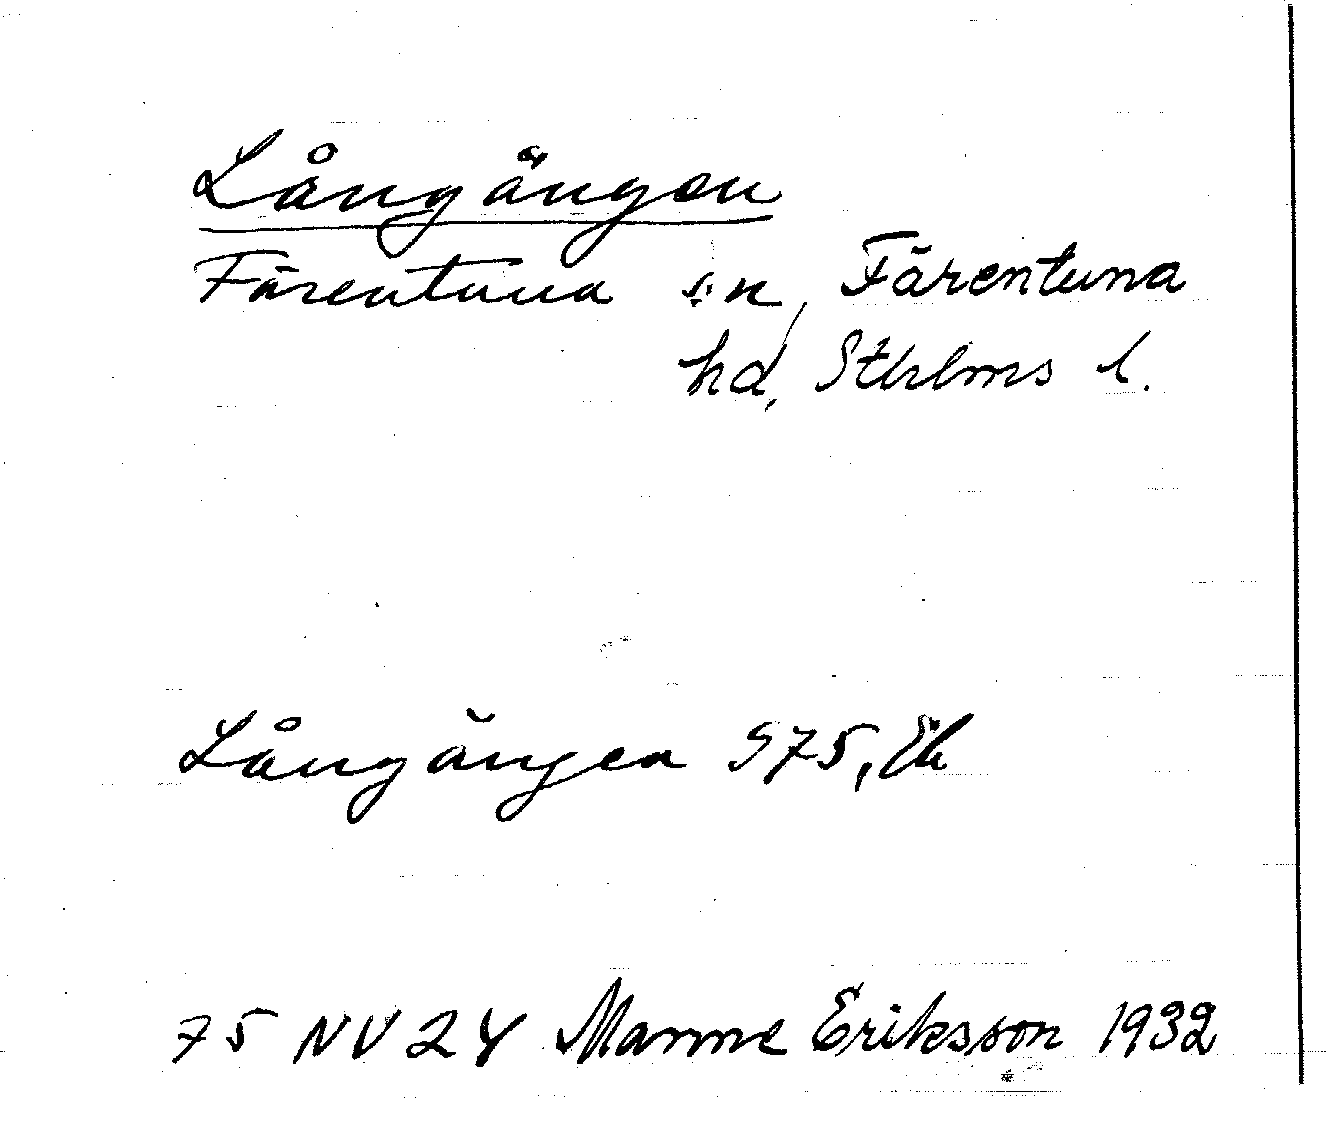 Långängen
Färentuna sn, Färentuna
hd, Sthlms l.
Långängen 975,
75 NV 24 Manne Eriksson 1932